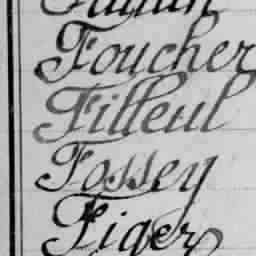 Foucher
Filleul
Fossey
Figer